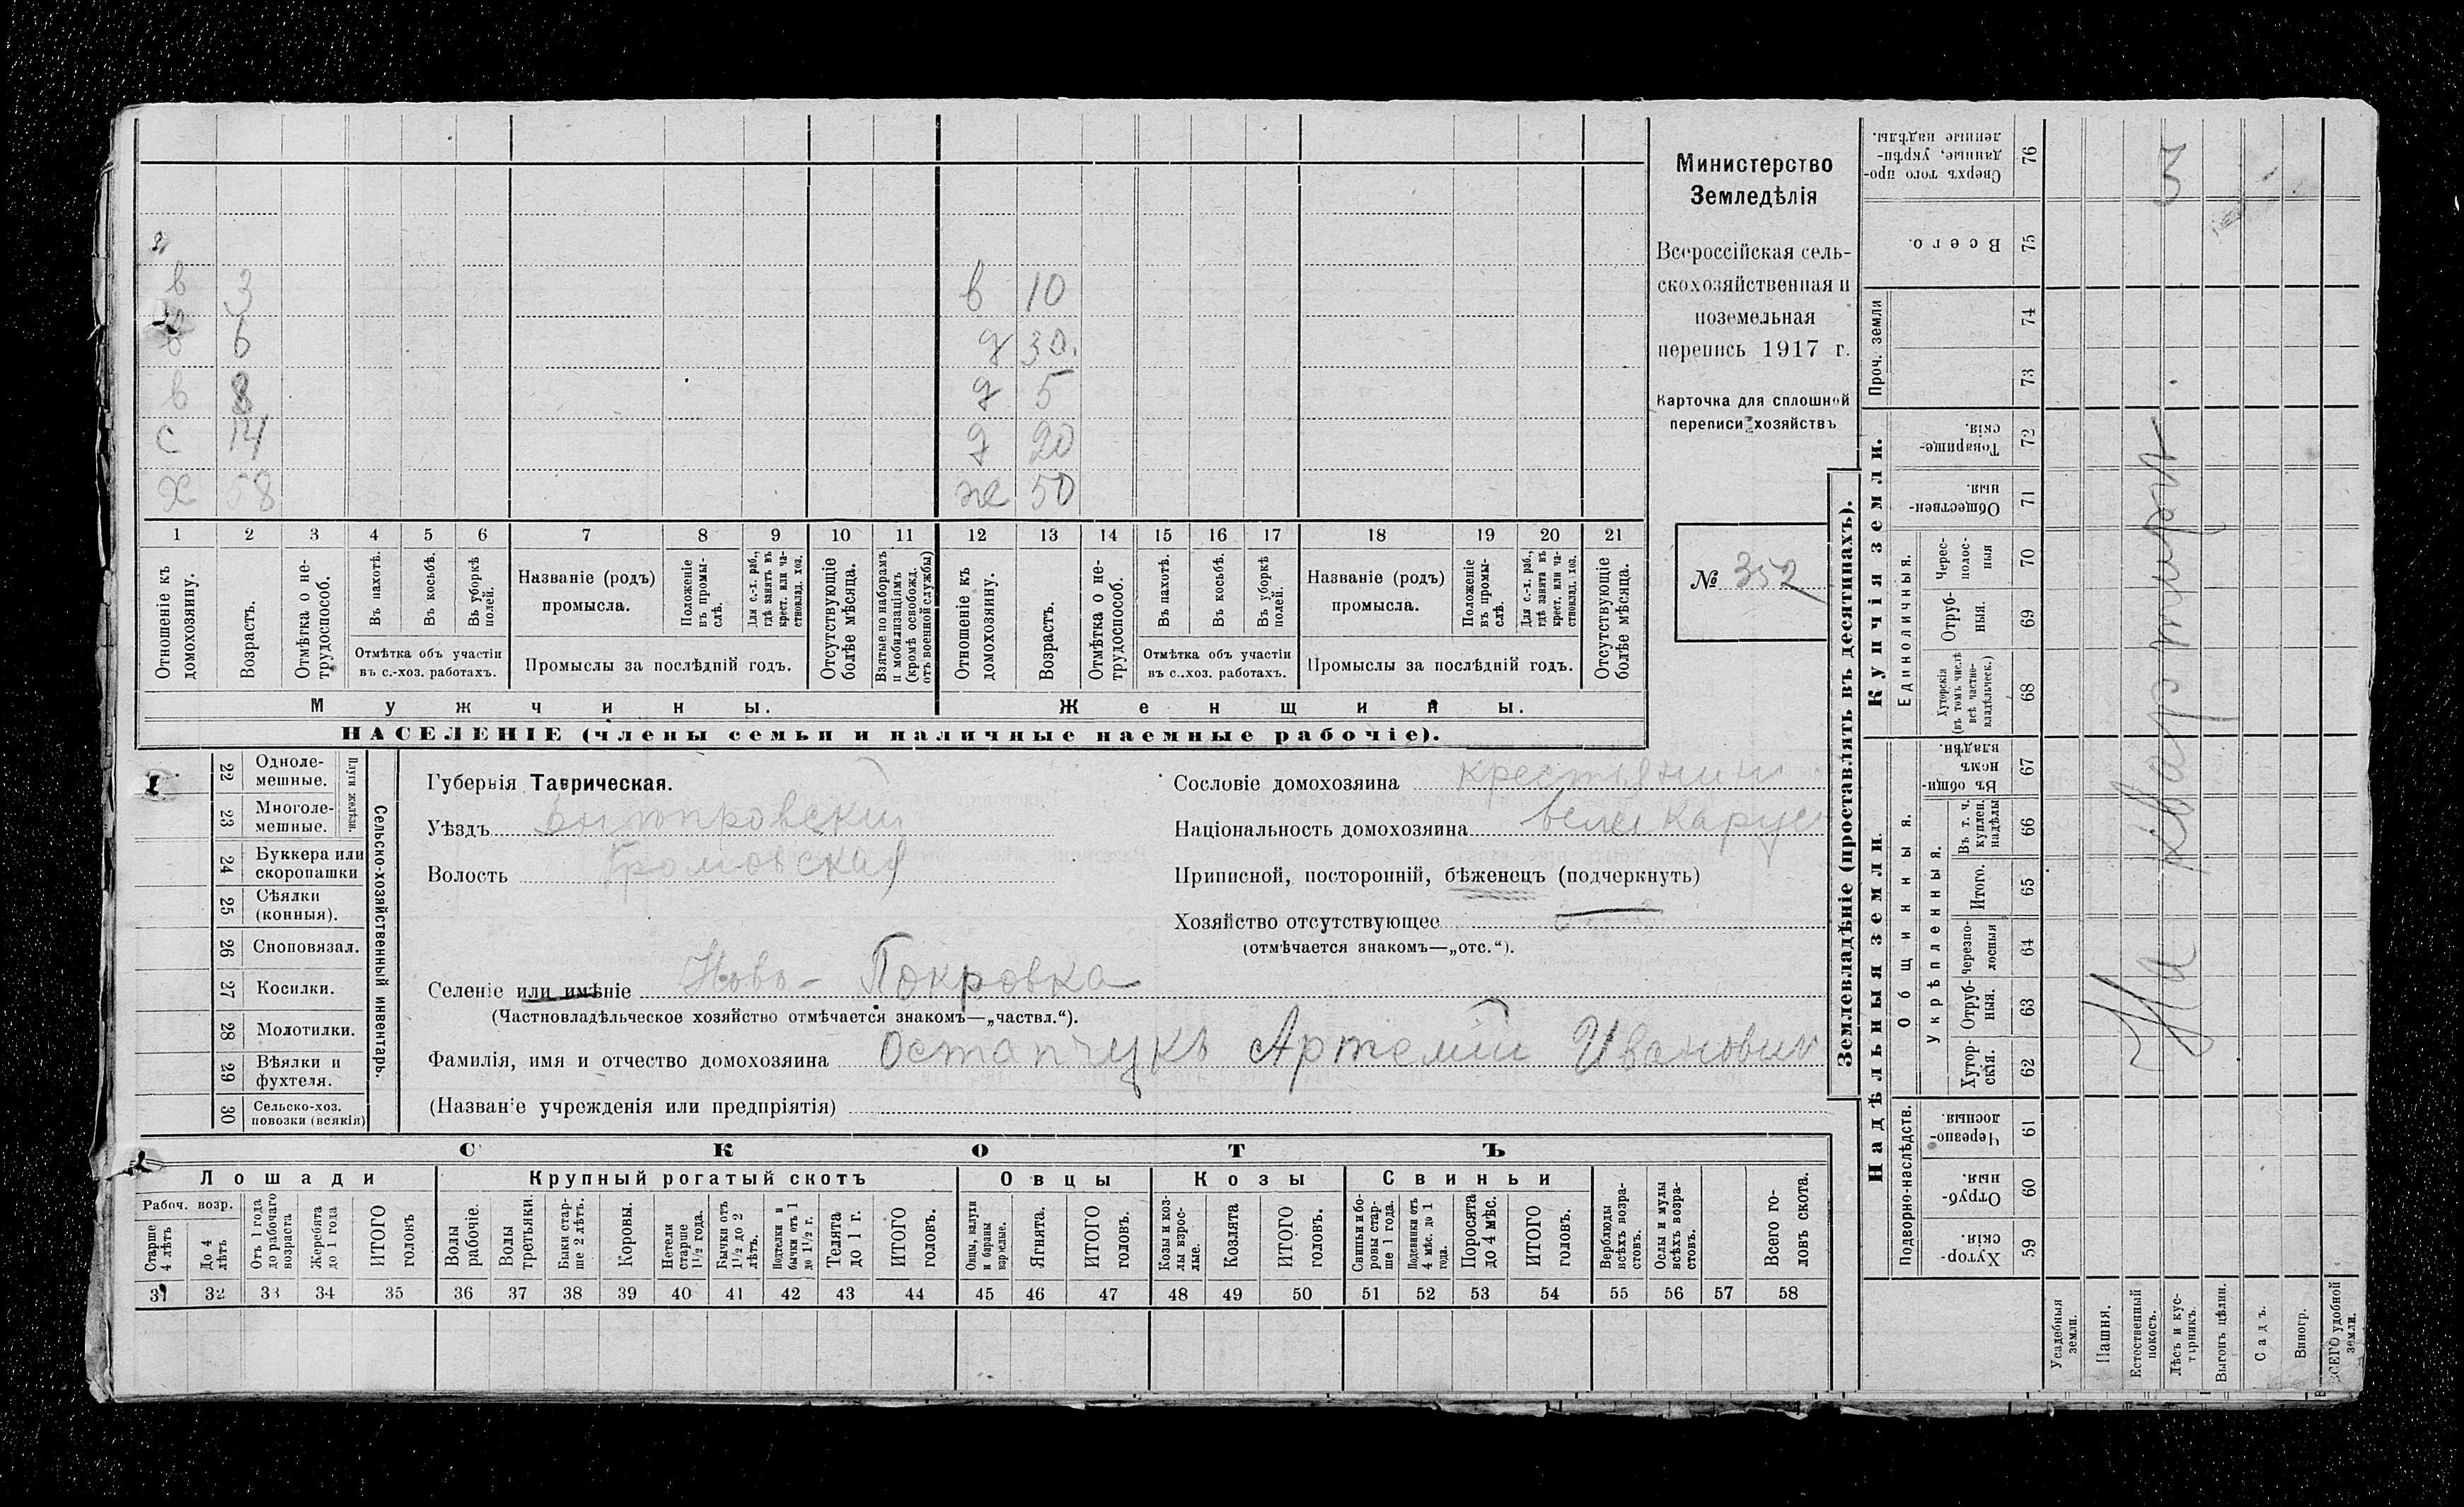 в 3 в 10
6 д 30.
в 8 д 5
с 14 д 20
х 58 же 50
1 2 3 4 5 6 7 8 9 10 11 12 13 14 15 16 17 18 19 20 21
Отношеніе къ домохозяину.
Возрастъ.
Отмѣтка о не-трудоспособ.
Въ пахотѣ.
Въ косьбѣ.
Въ уборкѣ полей.
Отмѣтка объ участіи
въ с.-хоз. работахъ.
Названіе (родъ)
промысла.
Положеніе въ промы-слѣ.
Для с.-х. раб., гдѣ занятъ въ крест. или ча-стновлад. хоз.
Промыслы за послѣдній годъ.
Отсутствующіе болѣе мѣсяца.
Взятые по наборамъ и мобилизаціямъ (кромѣ освобожд. отъ военной службы)
Отношеніе къ домохозяину.
Возрастъ.
Отмѣтка о не-трудоспособ.
Въ пахотѣ.
Въ косьбѣ.
Въ уборкѣ полей.
Отмѣтка объ участіи
въ с.-хоз. работахъ.
Названіе (родъ)
промысла.
Положеніе въ промы-слѣ.
Для с.-х. раб., гдѣ занята въ крест. или ча-стновлад. хоз.
Промыслы за послѣдній годъ.
Отсутствующіе болѣе мѣсяца.
Мужчины. Женщины.
НАСЕЛЕНІЕ (члены семьи и наличные наемные рабочіе).
Министерство
Земледѣлія
Всероссійская сель-
скохозяйственная и
поземельная
перепись 1917 г.
Карточка для сплошной
переписи хозяйствъ
№ 352
22 Одноле-мешные.
23 Многоле-мешные.
Плуги желѣзн.
24 Буккера или скоропашки
25 Сѣялки (конныя).
26 Сноповязал.
27 Косилки.
28 Молотилки.
29 Вѣялки и фухтеля.
30 Сельско-хоз. повозки (всякія)
Сельско-хозяйственный инвентарь.
Губернія Таврическая.
Уѣздъ Днѣпровскій
Волость Громовская
Селеніе или имѣніе Ново-Покровка
(Частновладѣльческое хозяйство отмѣчается знакомъ—„частвл.“).
Фамилія, имя и отчество домохозяина Остапчукъ Артемій Иванович
(Названіе учрежденія или предпріятія)
Сословіе домохозяина крестьянин
Національность домохозяина великорус
Приписной, посторонній, бѣженецъ (подчеркнуть)
Хозяйство отсутствующее
(отмѣчается знакомъ—„отс.“).
СКОТЪ
Лошади Крупный рогатый скотъ Овцы Козы Свиньи
Рабоч. возр.
Старше 4 лѣтъ
До 4 лѣтъ
Отъ 1 года до рабочаго возраста
Жеребята до 1 года
ИТОГО головъ
Волы рабочіе.
Волы третьяки.
Быки стар-ше 2 лѣтъ.
Коровы.
Нетели старше 1½ года.
Бычки отъ 1½ до 2 лѣтъ.
Подтелки и бычки отъ 1 до 1½ г.
Телята до 1 г.
ИТОГО головъ.
Овцы, валухи и бараны взрослые.
Ягнята.
ИТОГО головъ.
Козы и коз-лы взрос-лые.
Козлята
ИТОГО головъ.
Свиньи и бо-ровы стар-ше 1 года.
Подсвинки отъ 4 мѣс. до 1 года.
Поросята до 4 мѣс.
ИТОГО головъ.
Верблюды всѣхъ возра-стовъ.
Ослы и мулы всѣхъ возра-стовъ.
Всего го-ловъ скота.
31 32 33 34 35 36 37 38 39 40 41 42 43 44 45 46 47 48 49 50 51 52 53 54 55 56 57 58
Землевладѣніе (проставлять въ десятинахъ).
Надѣльныя земли. Купчія земли. Проч. земли
Подворно-наслѣдств. Общинныя. Единоличныя.
Укрѣпленныя.
Хутор-скія. 59
Отруб-ныя. 60
Черезпо-лосныя 61
Хутор-скія. 62
Отруб-ныя. 63
Черезпо-лосныя 64
Итого. 65
Въ т. ч. куплен. надѣлы 66
Въ общи-номъ владѣн. 67
Хуторскія (въ томъ числѣ всѣ частно-владѣльческ.) 68
Отруб-ныя. 69
Черес-полос-ныя 70
Обществен-ныя. 71
Товарище-скія. 72
73
74
Всего. 75
Сверхъ того про-данные, укрѣп-ленные надѣлы. 76
Усадебныя земли.
Пашня.
Естественный покосъ.
Лѣсъ и кус-тарникъ.
Выгонъ цѣлин.
Садъ.
Виногр.
ВСЕГО удобной земли.
На квартирѣ
5